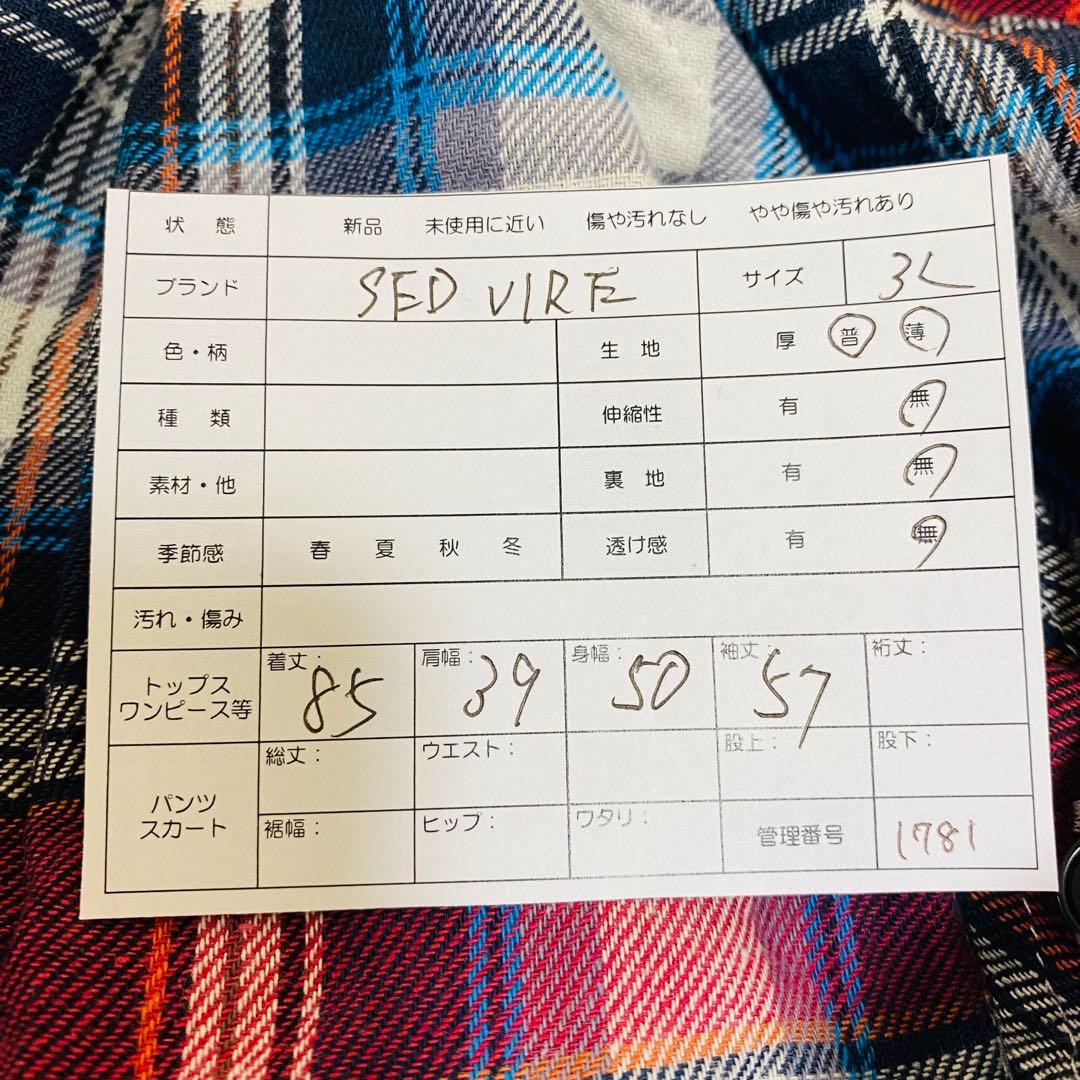 状 態 新品 未使用に近い 傷や汚れなし やや傷や汚れあり
ブランド SED VIRE サイズ 3L
色・柄 生 地 厚 普 薄
種 類 伸縮性 有 無
素材・他 裏 地 有 無
季節感 春 夏 秋 冬 透け感 有 無
汚れ・傷み
トップス
ワンピース等
着丈: 85 肩幅: 39 身幅: 50 袖丈: 57 裄丈:
パンツ
スカート
総丈: ウエスト: 股上: 股下:
裾幅: ヒップ: ワタリ: 管理番号 1781